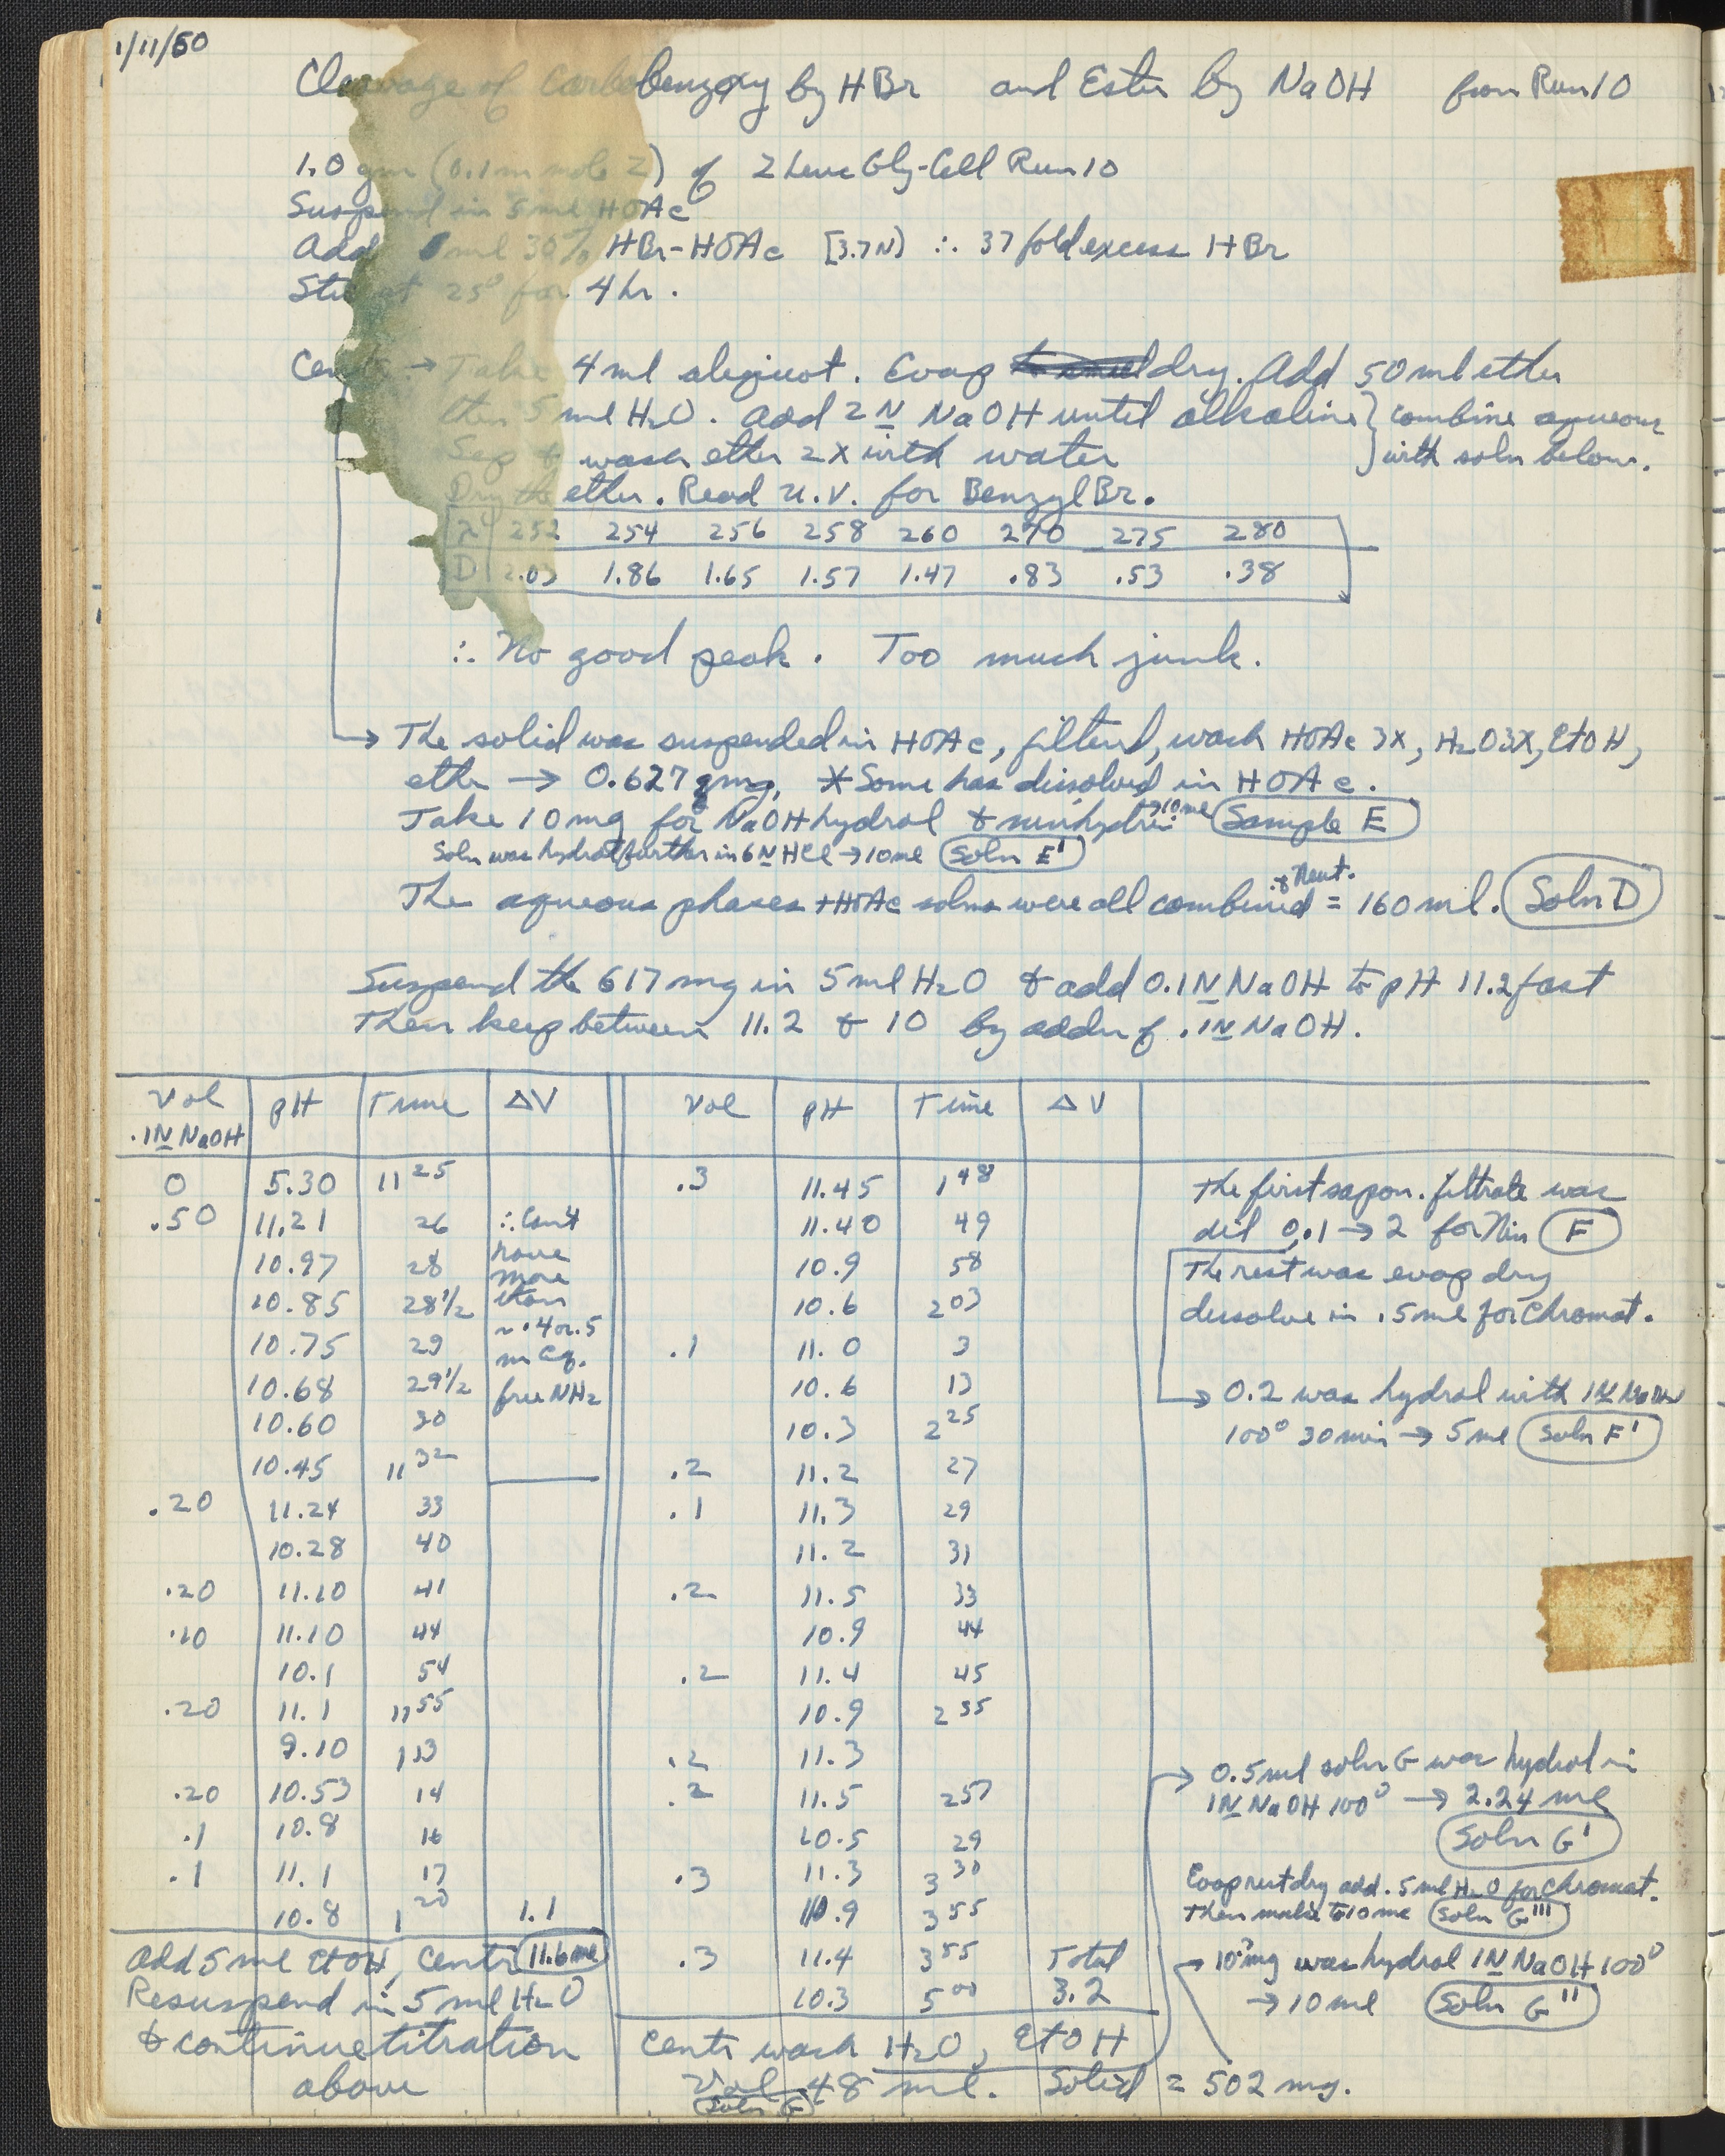 1/11/60
Cleavage of Carbobenzoxy by HBr and Ester by NaOH from Run 10
1.0 gm (0.1 m mole Z) of Z Leu Gly-Cell Run 10
Suspend in 5 ml HOAc
Add ml 30% HBr-HOAc [3.7N) ∴ 37 fold excess HBr
Stir at 25° for 4 hr.
Centr → Take 4 ml aliquot. Evap dry. Add 50 ml ether
then 5 ml H2O. Add 2 N NaOH until alkaline } combine aqueous
Sep & wash ether 2x with water } with soln below.
Dry the ether. Read U.V. for Benzyl Br.
λ 252 254 256 258 260 270 275 280
D 2.03 1.86 1.65 1.57 1.47 .83 .53 .38
∴ No good peak. Too much junk.
→ The solid was suspended in HOAc, filtered, wash HOAc 3x, H2O 3x, EtOH,
ether → 0.627 gmg, * Some has dissolved in HOAc.
Take 10 mg for NaOH hydrol & ninhydrin →10 ml Sample E
Soln was hydrol further in 6N HCl → 10 ml Soln E'
The aqueous phases + HOAc solns were all combined & Neut. = 160 ml. Soln D
Suspend the 617 mg in 5 ml H2O & add 0.1N NaOH to pH 11.2 fast
Then keep between 11.2 & 10 by addn of .1N NaOH.
Vol .1N NaOH pH Time ΔV Vol pH Time ΔV
0 5.30 11 25 .3 11.45 1 48 The first sapon. filtrate was
.50 11.21 26 ∴ Can't 11.40 49 dil 0.1 → 2 for Nin F
10.97 28 have more 10.9 58 The rest was evap dry
10.85 28 1/2 than 10.6 2 03 dissolve in .5 ml for Chromat.
10.75 29 ~ .4 or .5 m eq. .1 11.0 3
10.68 29 1/2 free NH2 10.6 13 → 0.2 was hydrol with 1N NaOH
10.60 30 10.3 2 25 100° 30 min → 5 ml Soln F'
10.45 11 32 .2 11.2 27
.20 11.24 33 .1 11.3 29
10.28 40 11.2 31
.20 11.10 41 .2 11.5 33
.10 11.10 44 10.9 44
10.1 54 .2 11.4 45
.20 11.1 11 55 10.9 2 55
9.10 1 13 .2 11.3 → 0.5 ml soln G was hydrol in
.20 10.53 14 .2 11.5 2 57 1N NaOH 100° → 2.24 ml
.1 10.8 16 10.5 29 Soln G'
.1 11.1 17 .3 11.3 3 30 Evap rest dry add .5 ml H2O for Chromat.
10.8 1 20 1.1 10.9 3 55 Then make to 10 ml Soln G'''
Add 5 ml EtOH, Centr 11.6 ml .3 11.4 3 55 Total → 10.? mg was hydrol 1N NaOH 100°
Resuspend in 5 ml H2O 10.3 5 00 3.2 → 10 ml Soln G''
& continue titration Centr wash H2O, EtOH
above Vol 48 ml. Solid = 502 mg.
Soln G